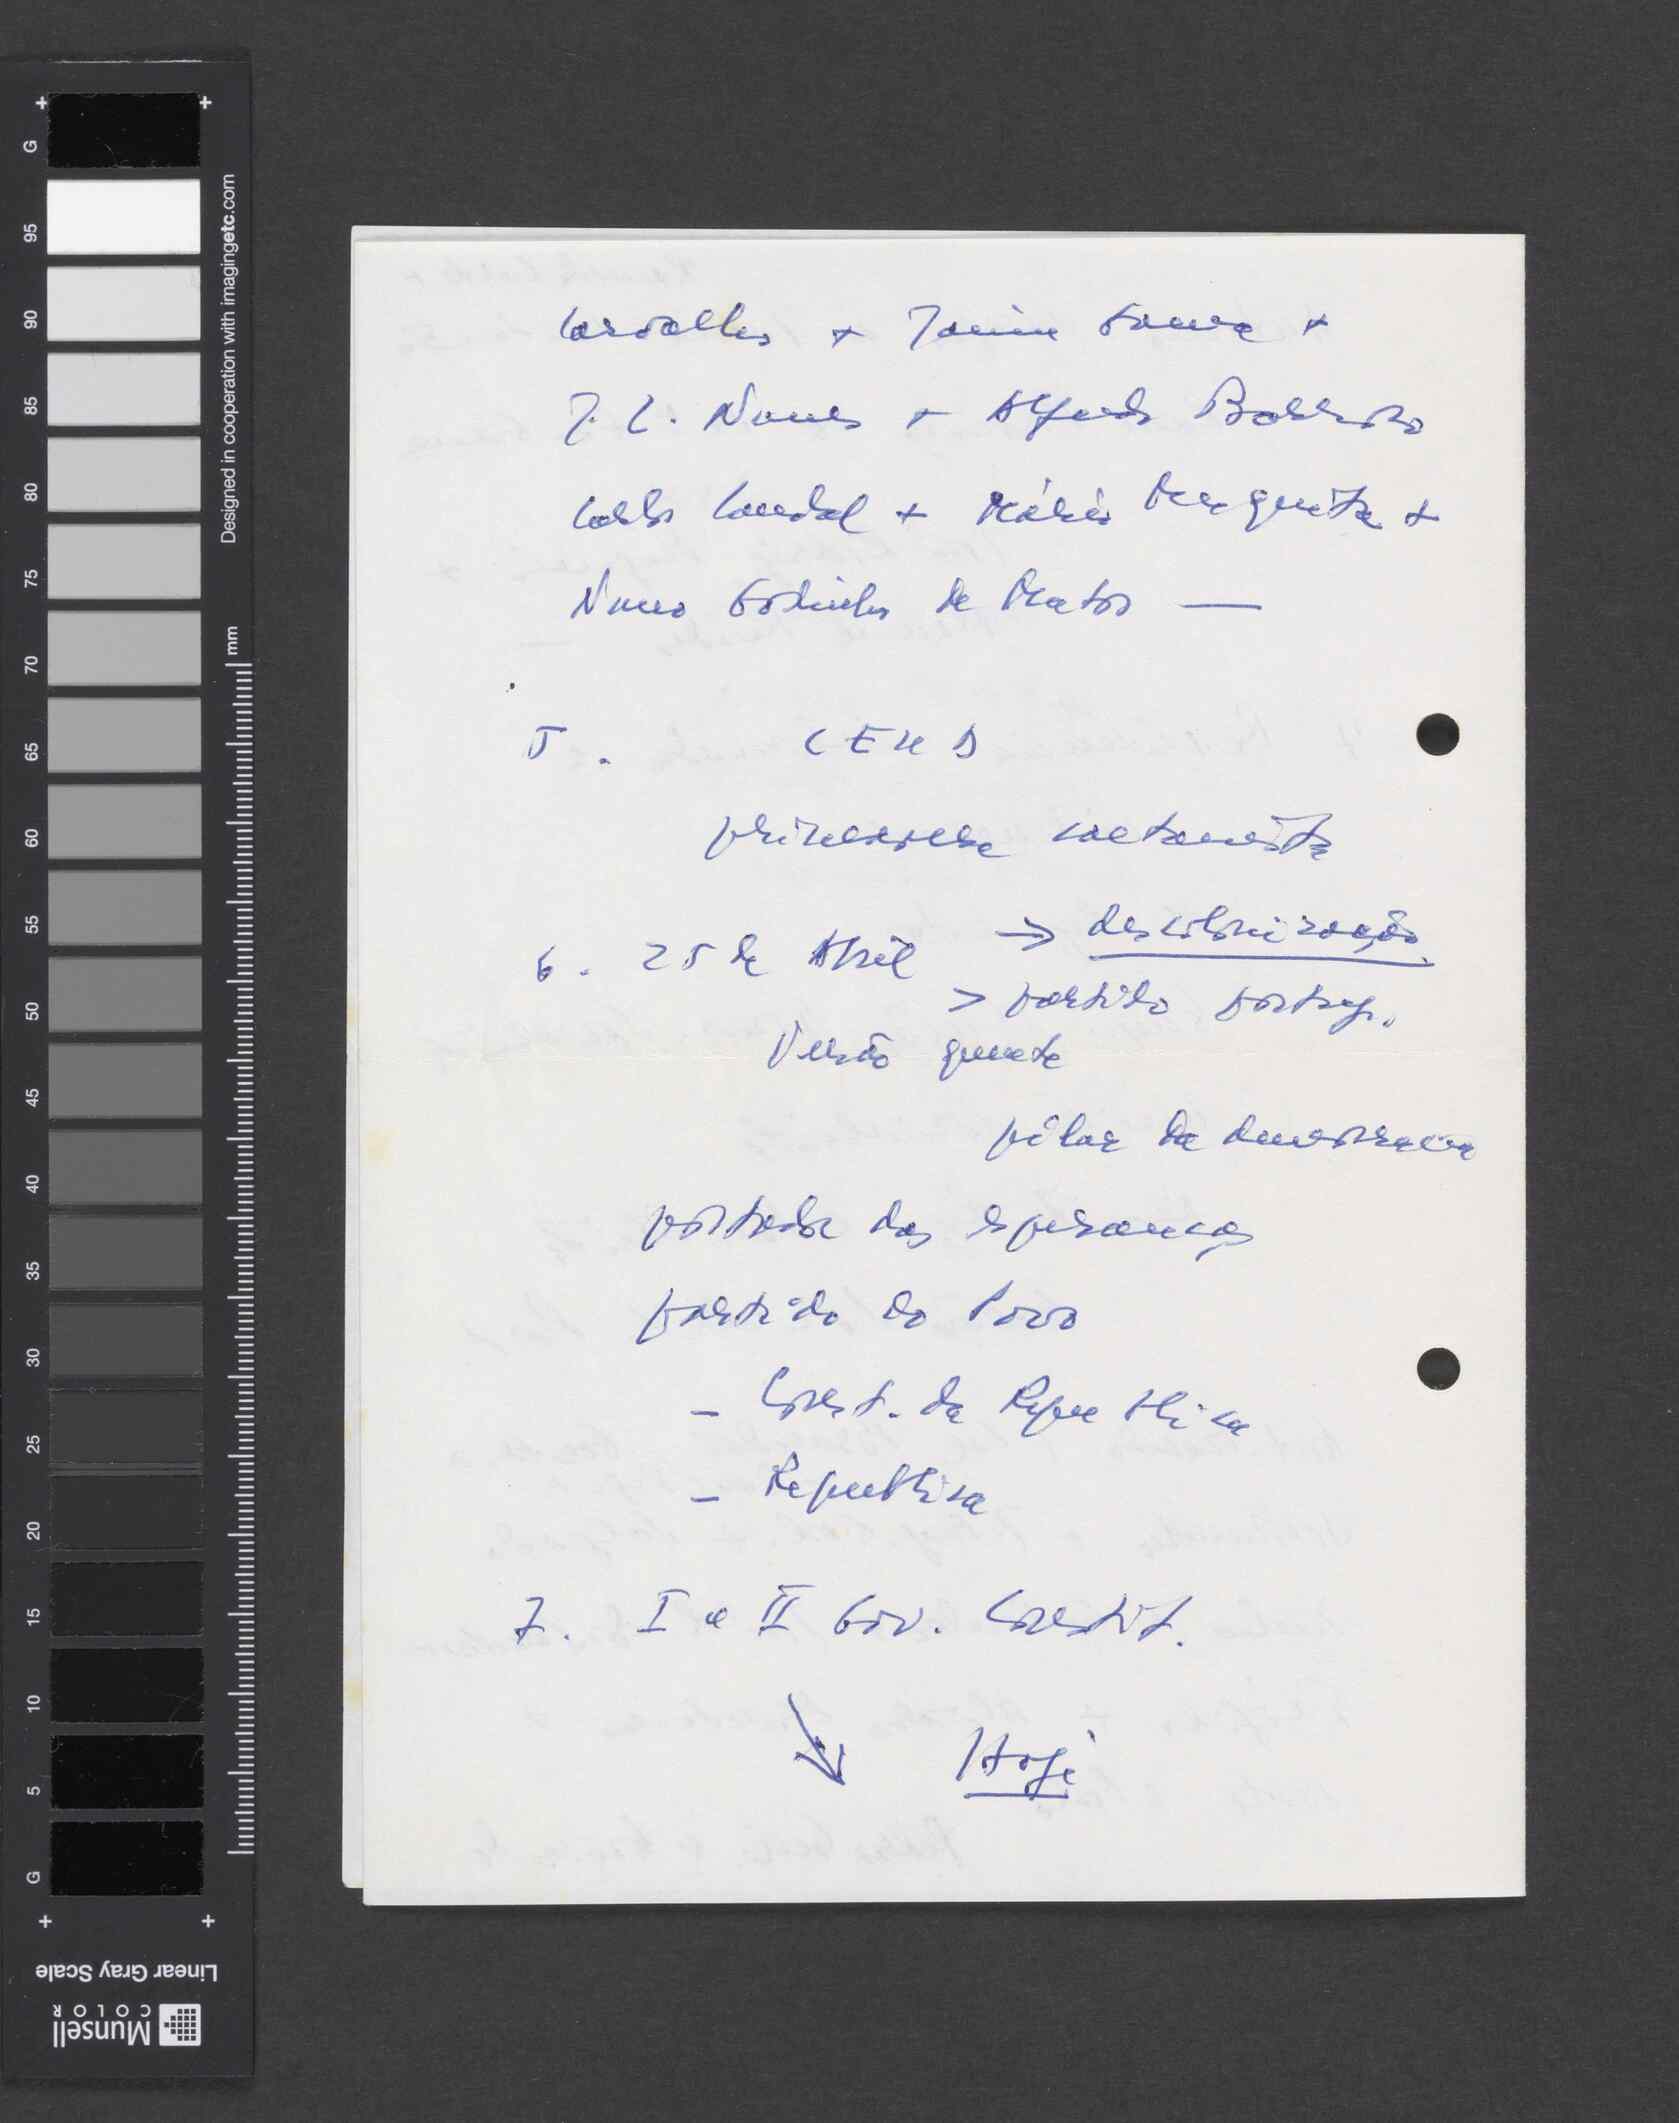 Carvalho + Jaime Gama +
J. L. Nunes + Alfredo Barroso
Carlos Candal + Mário Mesquita +
Nuno Godinho de Matos —
5. CEUD
primavera caetanista
6. 25 de Abril → descolonização
> partido portug.
Verão quente
pilar da democracia
portador das esperanças
partido do Povo
– Const. da Republica
– Republica
7. I e II Gov. Constit.
↘ Hoje
G
95
90
85
80
75
70
65
60
55
50
45
40
35
30
25
20
15
10
5
G
Designed in cooperation with imagingetc.com
mm
Linear Gray Scale
Munsell
COLOR